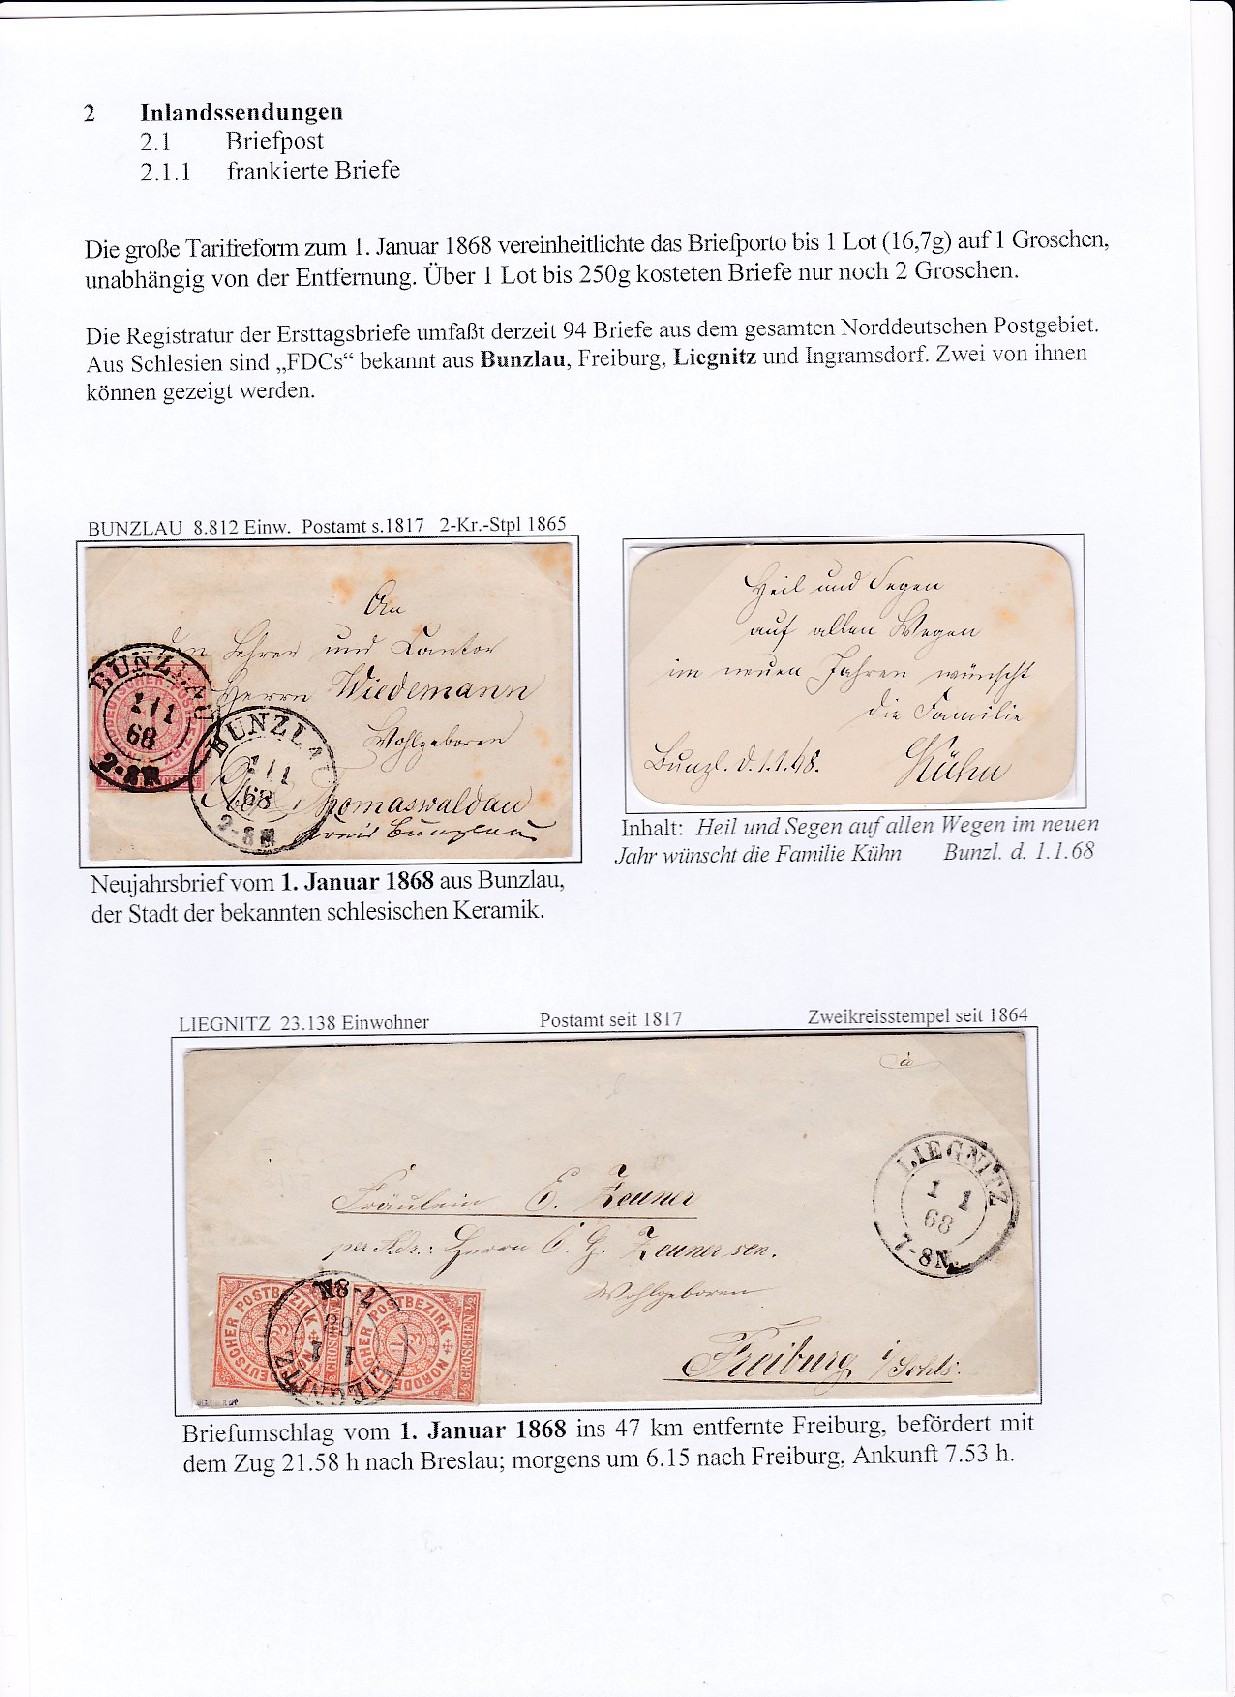 2 Inlandssendungen
2.1 Briefpost
2.1.1 frankierte Briefe
Die große Tarifreform zum 1. Januar 1868 vereinheitlichte das Briefporto bis 1 Lot (16,7g) auf 1 Groschen,
unabhängig von der Entfernung. Über 1 Lot bis 250g kosteten Briefe nur noch 2 Groschen.
Die Registratur der Ersttagsbriefe umfaßt derzeit 94 Briefe aus dem gesamten Norddeutschen Postgebiet.
Aus Schlesien sind „FDCs“ bekannt aus Bunzlau, Freiburg, Liegnitz und Ingramsdorf. Zwei von ihnen
können gezeigt werden.
BUNZLAU 8.812 Einw. Postamt s.1817 2-Kr.-Stpl 1865
An
den Lehrer und Cantor
Herrn Wiedemann
Wohlgeboren
Thomaswaldau
Kreis Bunzlau
BUNZLAU
1/1
68
2-8N
BUNZLA
1/1
68
2-8N
Heil und Segen
auf allen Wegen
im neuen Jahren wünscht
die Familie
Bunzl. d. 1.1.68. Kühn
Inhalt: Heil und Segen auf allen Wegen im neuen
Jahr wünscht die Familie Kühn Bunzl. d. 1.1.68
Neujahrsbrief vom 1. Januar 1868 aus Bunzlau,
der Stadt der bekannten schlesischen Keramik.
LIEGNITZ 23.138 Einwohner Postamt seit 1817 Zweikreisstempel seit 1864
LIEGNITZ
1 1
68
7-8N.
Fräulein E. Zeuner
per Adr.: Herrn C. G. Zeuner sen.
Wohlgeboren
Freiburg i/Schls.
NORDDEUTSCHER POSTBEZIRK
NORDDEUTSCHER POSTBEZIRK
1/2 GROSCHEN 1/2
LIEGNITZ
1 1
68
7-8N.
Briefumschlag vom 1. Januar 1868 ins 47 km entfernte Freiburg, befördert mit
dem Zug 21.58 h nach Breslau; morgens um 6.15 nach Freiburg, Ankunft 7.53 h.